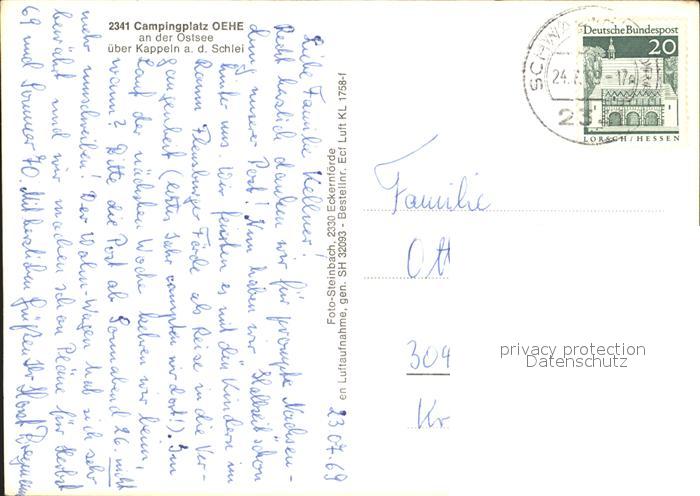 2341 Campingplatz OEHE
an der Ostsee
über Kappeln a. d. Schlei
Liebe Familie Kellner!
Recht herzlich danken wir für prompte Nachsen-
dung unserer Post! Nun haben wir Halbzeit schon
hinter uns. Wir feierten es mit den Kindern im
Raum Flensburger Förde als Reise in die Ver-
gangenheit (letztes Jahr campten wir dort!). Im
Lauf der nächsten Woche kehren wir heim,
wann? Bitte die Post ab Sonnabend 26. nicht
mehr umschreiben! Der Wohn-Wagen hat sich sehr
bewährt und wir machen schon Pläne für Herbst
69 und Sommer 70. Mit herzlichen Grüßen Ihr Horst
23.07.69
Foto-Steinbach, 2330 Eckernförde
en Luftaufnahme, gen. SH 32093 - Bestellnr. Ecf Luft KL 1758-f
SCHWA
24.7.69-17
23
Deutsche Bundespost
20
LORSCH/HESSEN
Familie
Ott
304
Kr
privacy protection
Datenschutz